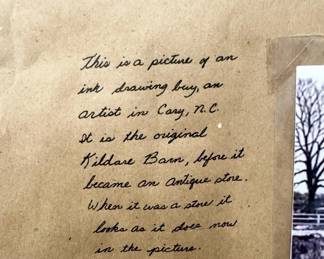 This is a picture of an
ink drawing buy, an
artist in Cary, N.C.
It is the original
Kildare Barn, before it
became an Antique store.
When it was a store it
looks as it does now
in the picture.